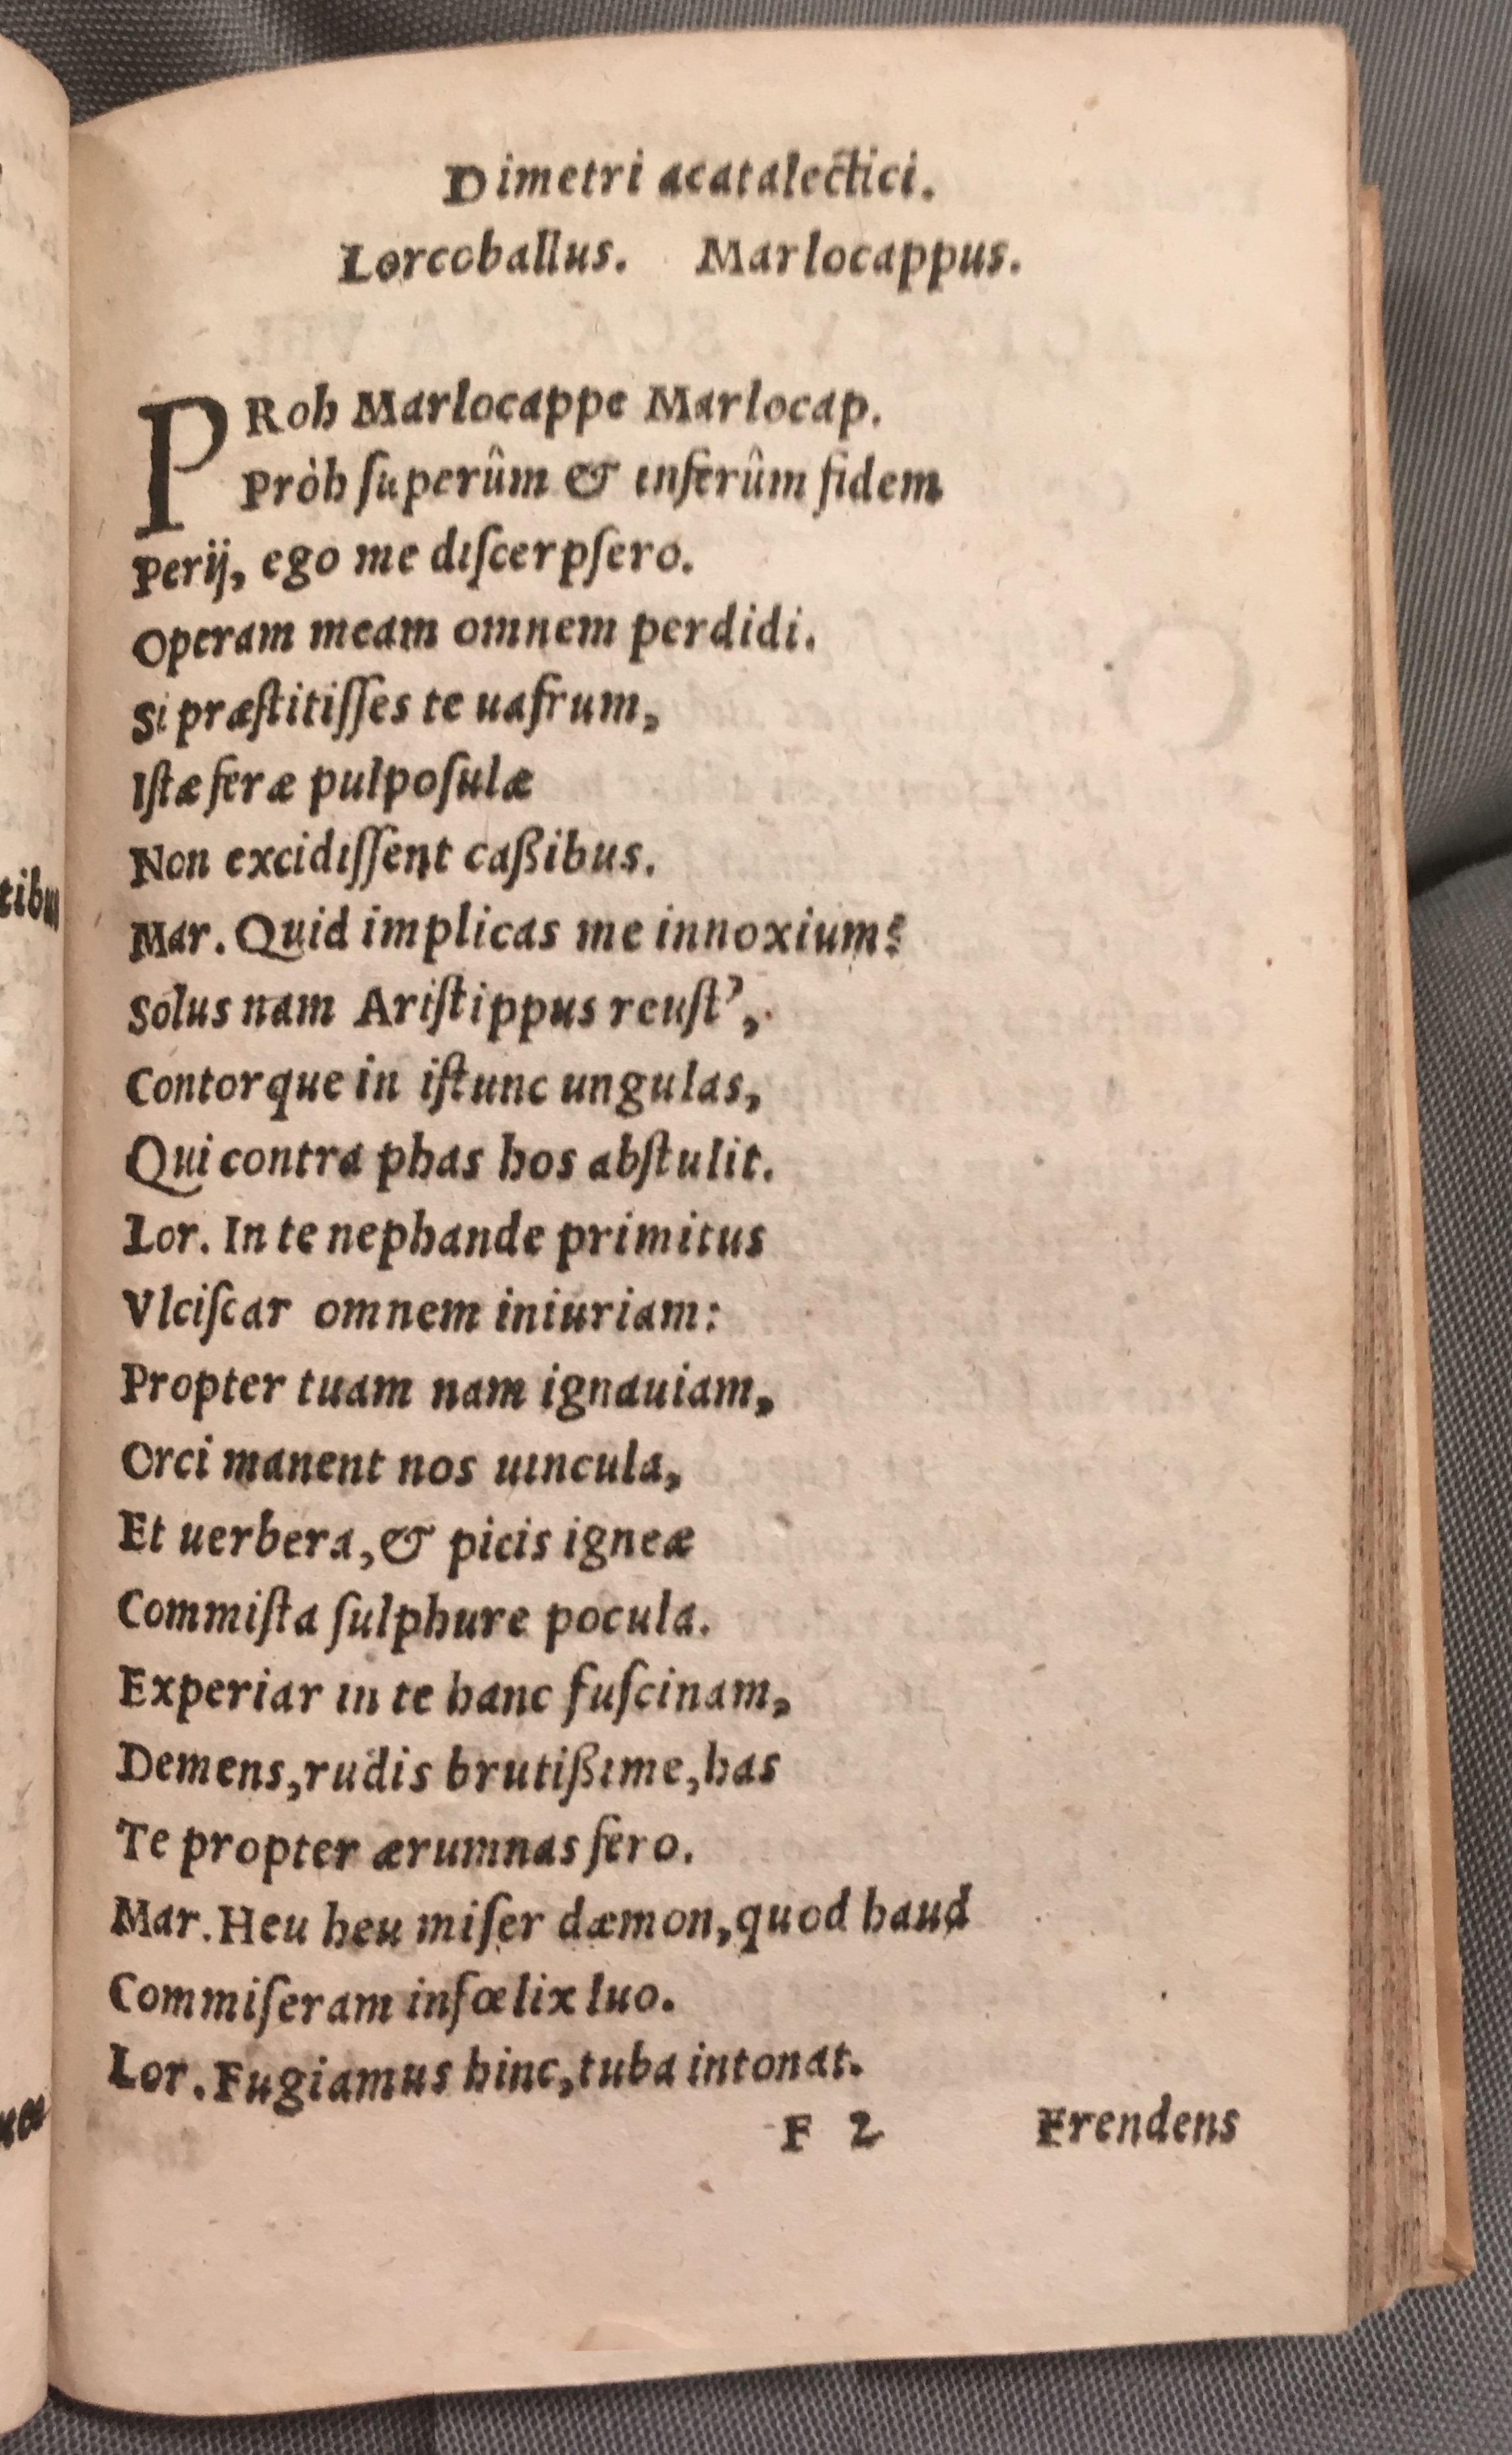 Dimetri acatalectici.
Lorcoballus. Marlocappus.
PRoh Marlocappe Marlocap.
Pròh ſuperûm & inferûm fidem
Perij, ego me diſcerpſero.
Operam meam omnem perdidi.
Si præſtitiſſes te uafrum,
Iſtæ feræ pulpoſulæ
Non excidiſſent caßibus.
Mar. Quid implicas me innoxium?
Solus nam Ariſtippus reuſt',
Contorque in iſtunc ungulas,
Qui contra phas hos abſtulit.
Lor. In te nephande primitus
Vlciſcar omnem iniuriam:
Propter tuam nam ignauiam,
Orci manent nos uincula,
Et uerbera, & picis igneæ
Commiſta ſulphure pocula.
Experiar in te hanc fuſcinam,
Demens, rudis brutißime, has
Te propter ærumnas fero.
Mar. Heu heu miſer dæmon, quod haud
Commiſeram infœlix luo.
Lor. Fugiamus hinc, tuba intonat.
F 2 Frendens